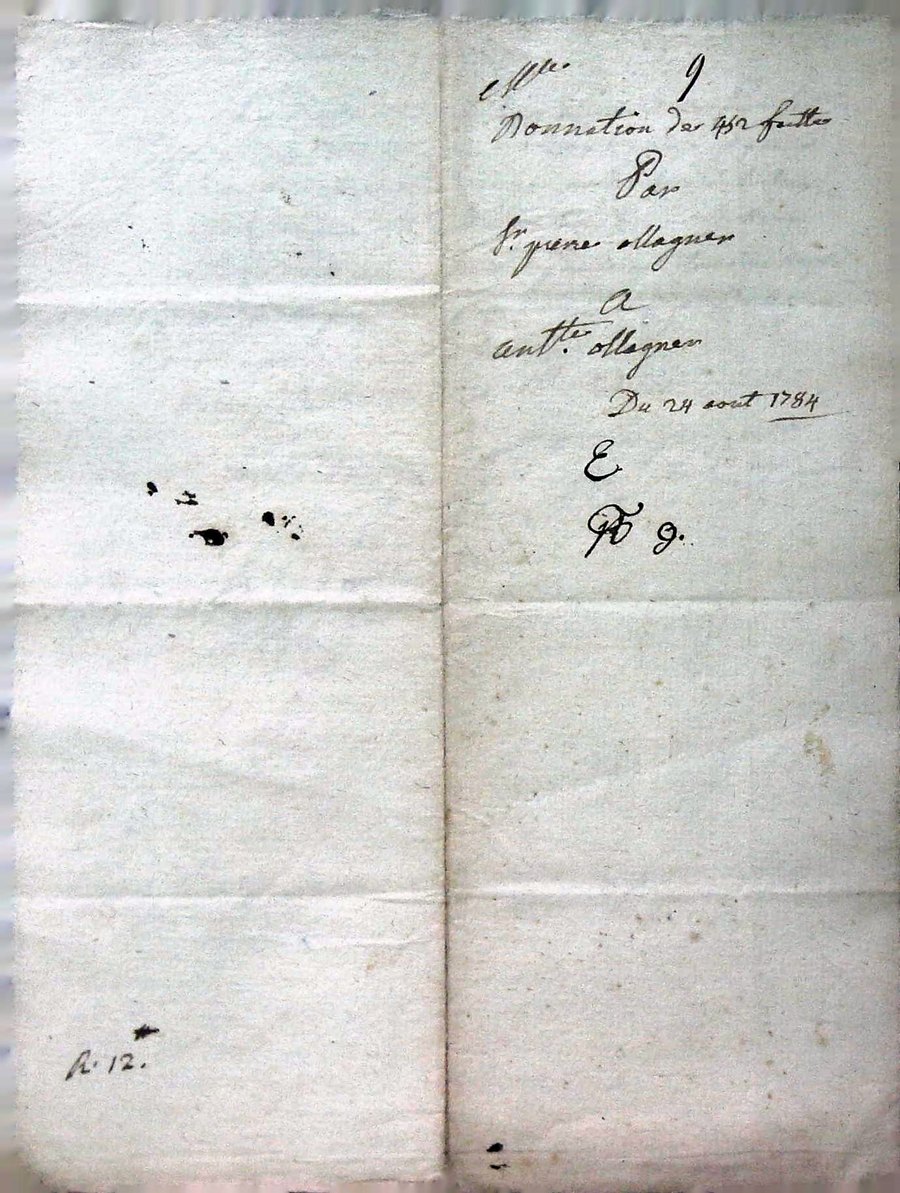 9
Donnation de 452 faitte
Par
Sr. pierre Magner
A
antte. Magner
Du 24 aout 1784
E
9.
R. 12.